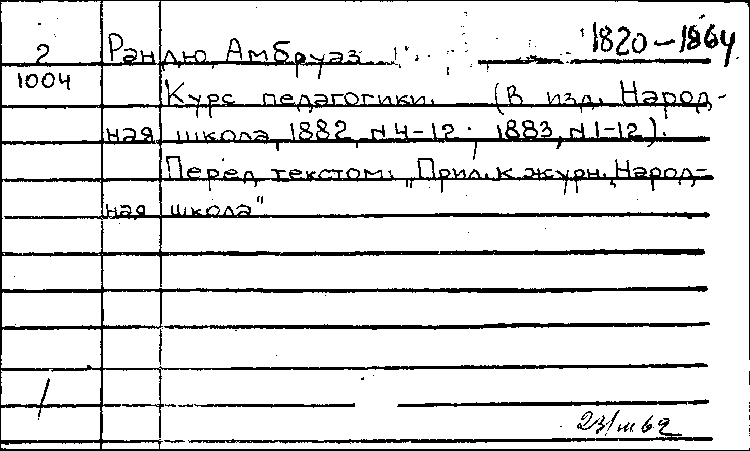 2 Рандю, Амбруаз 1820-1864
1004
Курс педагогики. (В изд. Народ-
ная школа, 1882, N4-12; 1883, N1-12).
Перед текстом: "Прил. к журн. "Народ-
ная школа"
23/III 62